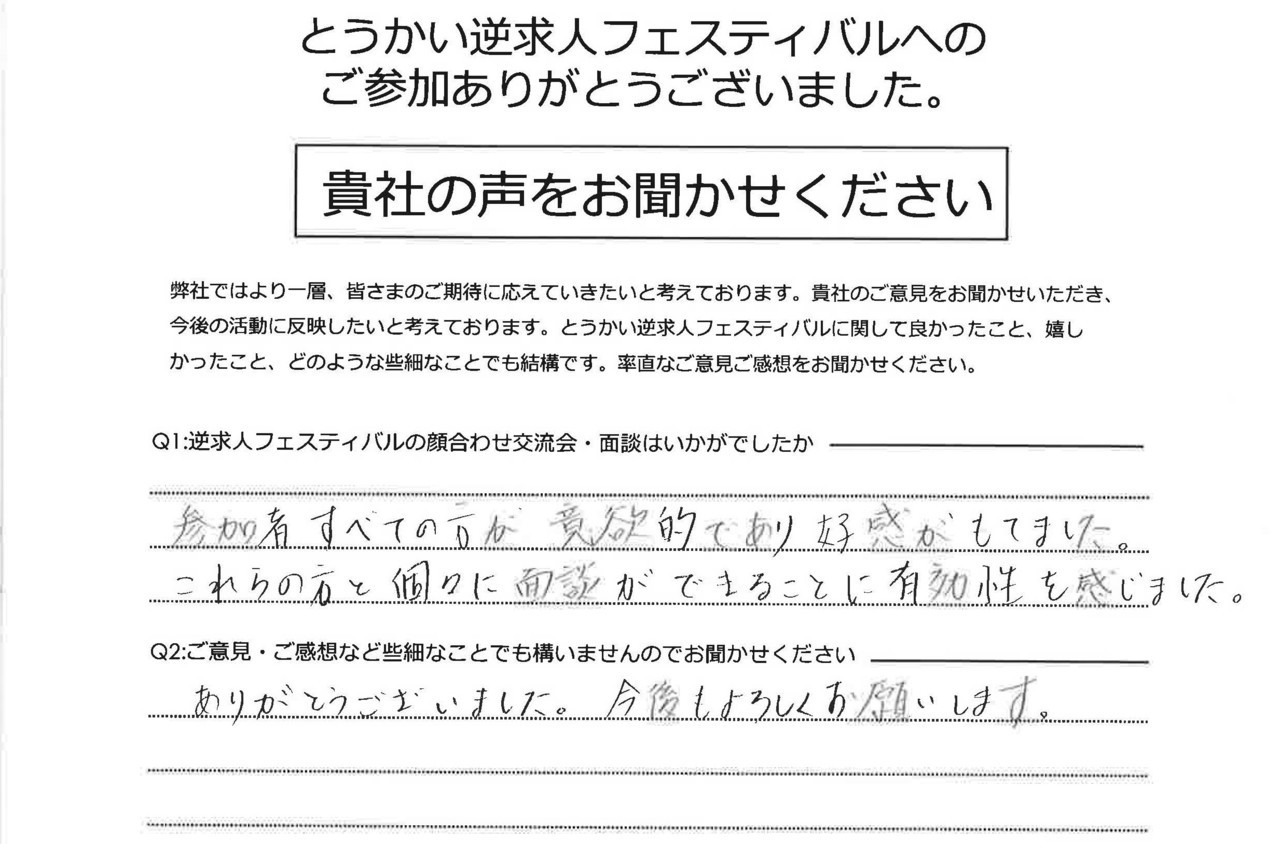 とうかい逆求人フェスティバルへの
ご参加ありがとうございました。
貴社の声をお聞かせください
弊社ではより一層、皆さまのご期待に応えていきたいと考えております。貴社のご意見をお聞かせいただき、
今後の活動に反映したいと考えております。とうかい逆求人フェスティバルに関して良かったこと、嬉し
かったこと、どのような些細なことでも結構です。率直なご意見ご感想をお聞かせください。
Q1:逆求人フェスティバルの顔合わせ交流会・面談はいかがでしたか
参加者すべての方が意欲的であり好感がもてました。
これらの方と個々に面談ができることに有効性を感じました。
Q2:ご意見・ご感想など些細なことでも構いませんのでお聞かせください
ありがとうございました。今後もよろしくお願いします。